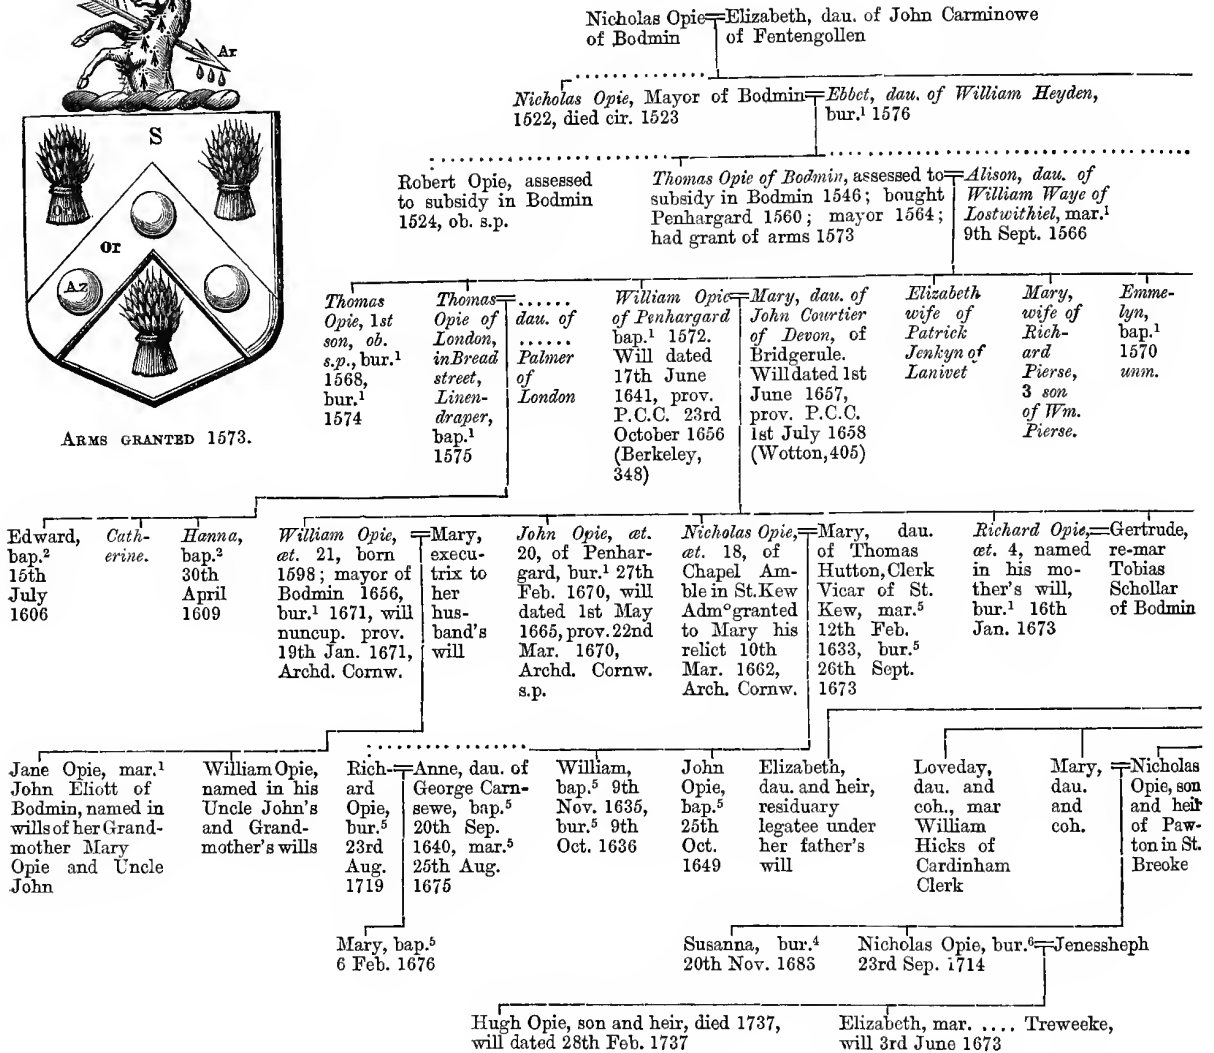 Ar
S
Or
or
Az
ARMS GRANTED 1573.
Nicholas Opie=Elizabeth, dau. of John Carminowe
of Bodmin of Fentengollen
Nicholas Opie, Mayor of Bodmin=Ebbet, dau. of William Heyden,
1522, died cir. 1523 bur.¹ 1576
Robert Opie, assessed
to subsidy in Bodmin
1524, ob. s.p.
Thomas Opie of Bodmin, assessed to=
subsidy in Bodmin 1546; bought
Penhargard 1560; mayor 1564;
had grant of arms 1573
Alison, dau. of
William Waye of
Lostwithiel, mar.¹
9th Sept. 1566
Thomas
Opie, 1st
son, ob.
s.p., bur.¹
1568,
bur.¹
1574
Thomas=
Opie of
London,
in Bread
street,
Linen-
draper,
bap.¹
1575
......
dau. of
......
Palmer
of
London
William Opie=
of Penhargard
bap.¹ 1572.
Will dated
17th June
1641, prov.
P.C.C. 23rd
October 1656
(Berkeley,
348)
Mary, dau. of
John Courtier
of Devon, of
Bridgerule.
Will dated 1st
June 1657,
prov. P.C.C.
1st July 1658
(Wotton, 405)
Elizabeth
wife of
Patrick
Jenkyn of
Lanivet
Mary,
wife of
Rich-
ard
Pierse,
3 son
of Wm.
Pierse.
Emme-
lyn,
bap.¹
1570
unm.
Edward,
bap.²
15th
July
1606
Cath-
erine.
Hanna,
bap.²
30th
April
1609
William Opie,=
æt. 21, born
1598; mayor of
Bodmin 1656,
bur.¹ 1671, will
nuncup. prov.
19th Jan. 1671,
Archd. Cornw.
Mary,
execu-
trix to
her
hus-
band's
will
John Opie, æt.
20, of Penhar-
gard, bur.¹ 27th
Feb. 1670, will
dated 1st May
1665, prov. 22nd
Mar. 1670,
Archd. Cornw.
s.p.
Nicholas Opie,=
æt. 18, of
Chapel Am-
ble in St. Kew
Admº granted
to Mary his
relict 10th
Mar. 1662,
Arch. Cornw.
Mary, dau.
of Thomas
Hutton, Clerk
Vicar of St.
Kew, mar.⁵
12th Feb.
1633, bur.⁵
26th Sept.
1673
Richard Opie,=
æt. 4, named
in his mo-
ther's will,
bur.¹ 16th
Jan. 1673
Gertrude,
re-mar
Tobias
Schollar
of Bodmin
Jane Opie, mar.¹
John Eliott of
Bodmin, named in
wills of her Grand-
mother Mary
Opie and Uncle
John
William Opie,
named in his
Uncle John's
and Grand-
mother's wills
Rich-=
ard
Opie,
bur.⁵
23rd
Aug.
1719
Anne, dau. of
George Carn-
sewe, bap.⁵
20th Sep.
1640, mar.⁵
25th Aug.
1675
William,
bap.⁵ 9th
Nov. 1635,
bur.⁵ 9th
Oct. 1636
John
Opie,
bap.⁵
25th
Oct.
1649
Elizabeth,
dau. and heir,
residuary
legatee under
her father's
will
Loveday,
dau. and
coh., mar
William
Hicks of
Cardinham
Clerk
Mary,=
dau.
and
coh.
Nicholas
Opie, son
and heir
of Paw-
ton in St.
Breoke
Mary, bap.⁵
6 Feb. 1676
Susanna, bur.⁴
20th Nov. 1683
Nicholas Opie, bur.⁶=Jenessheph
23rd Sep. 1714
Hugh Opie, son and heir, died 1737,
will dated 28th Feb. 1737
Elizabeth, mar. .... Treweeke,
will 3rd June 1673